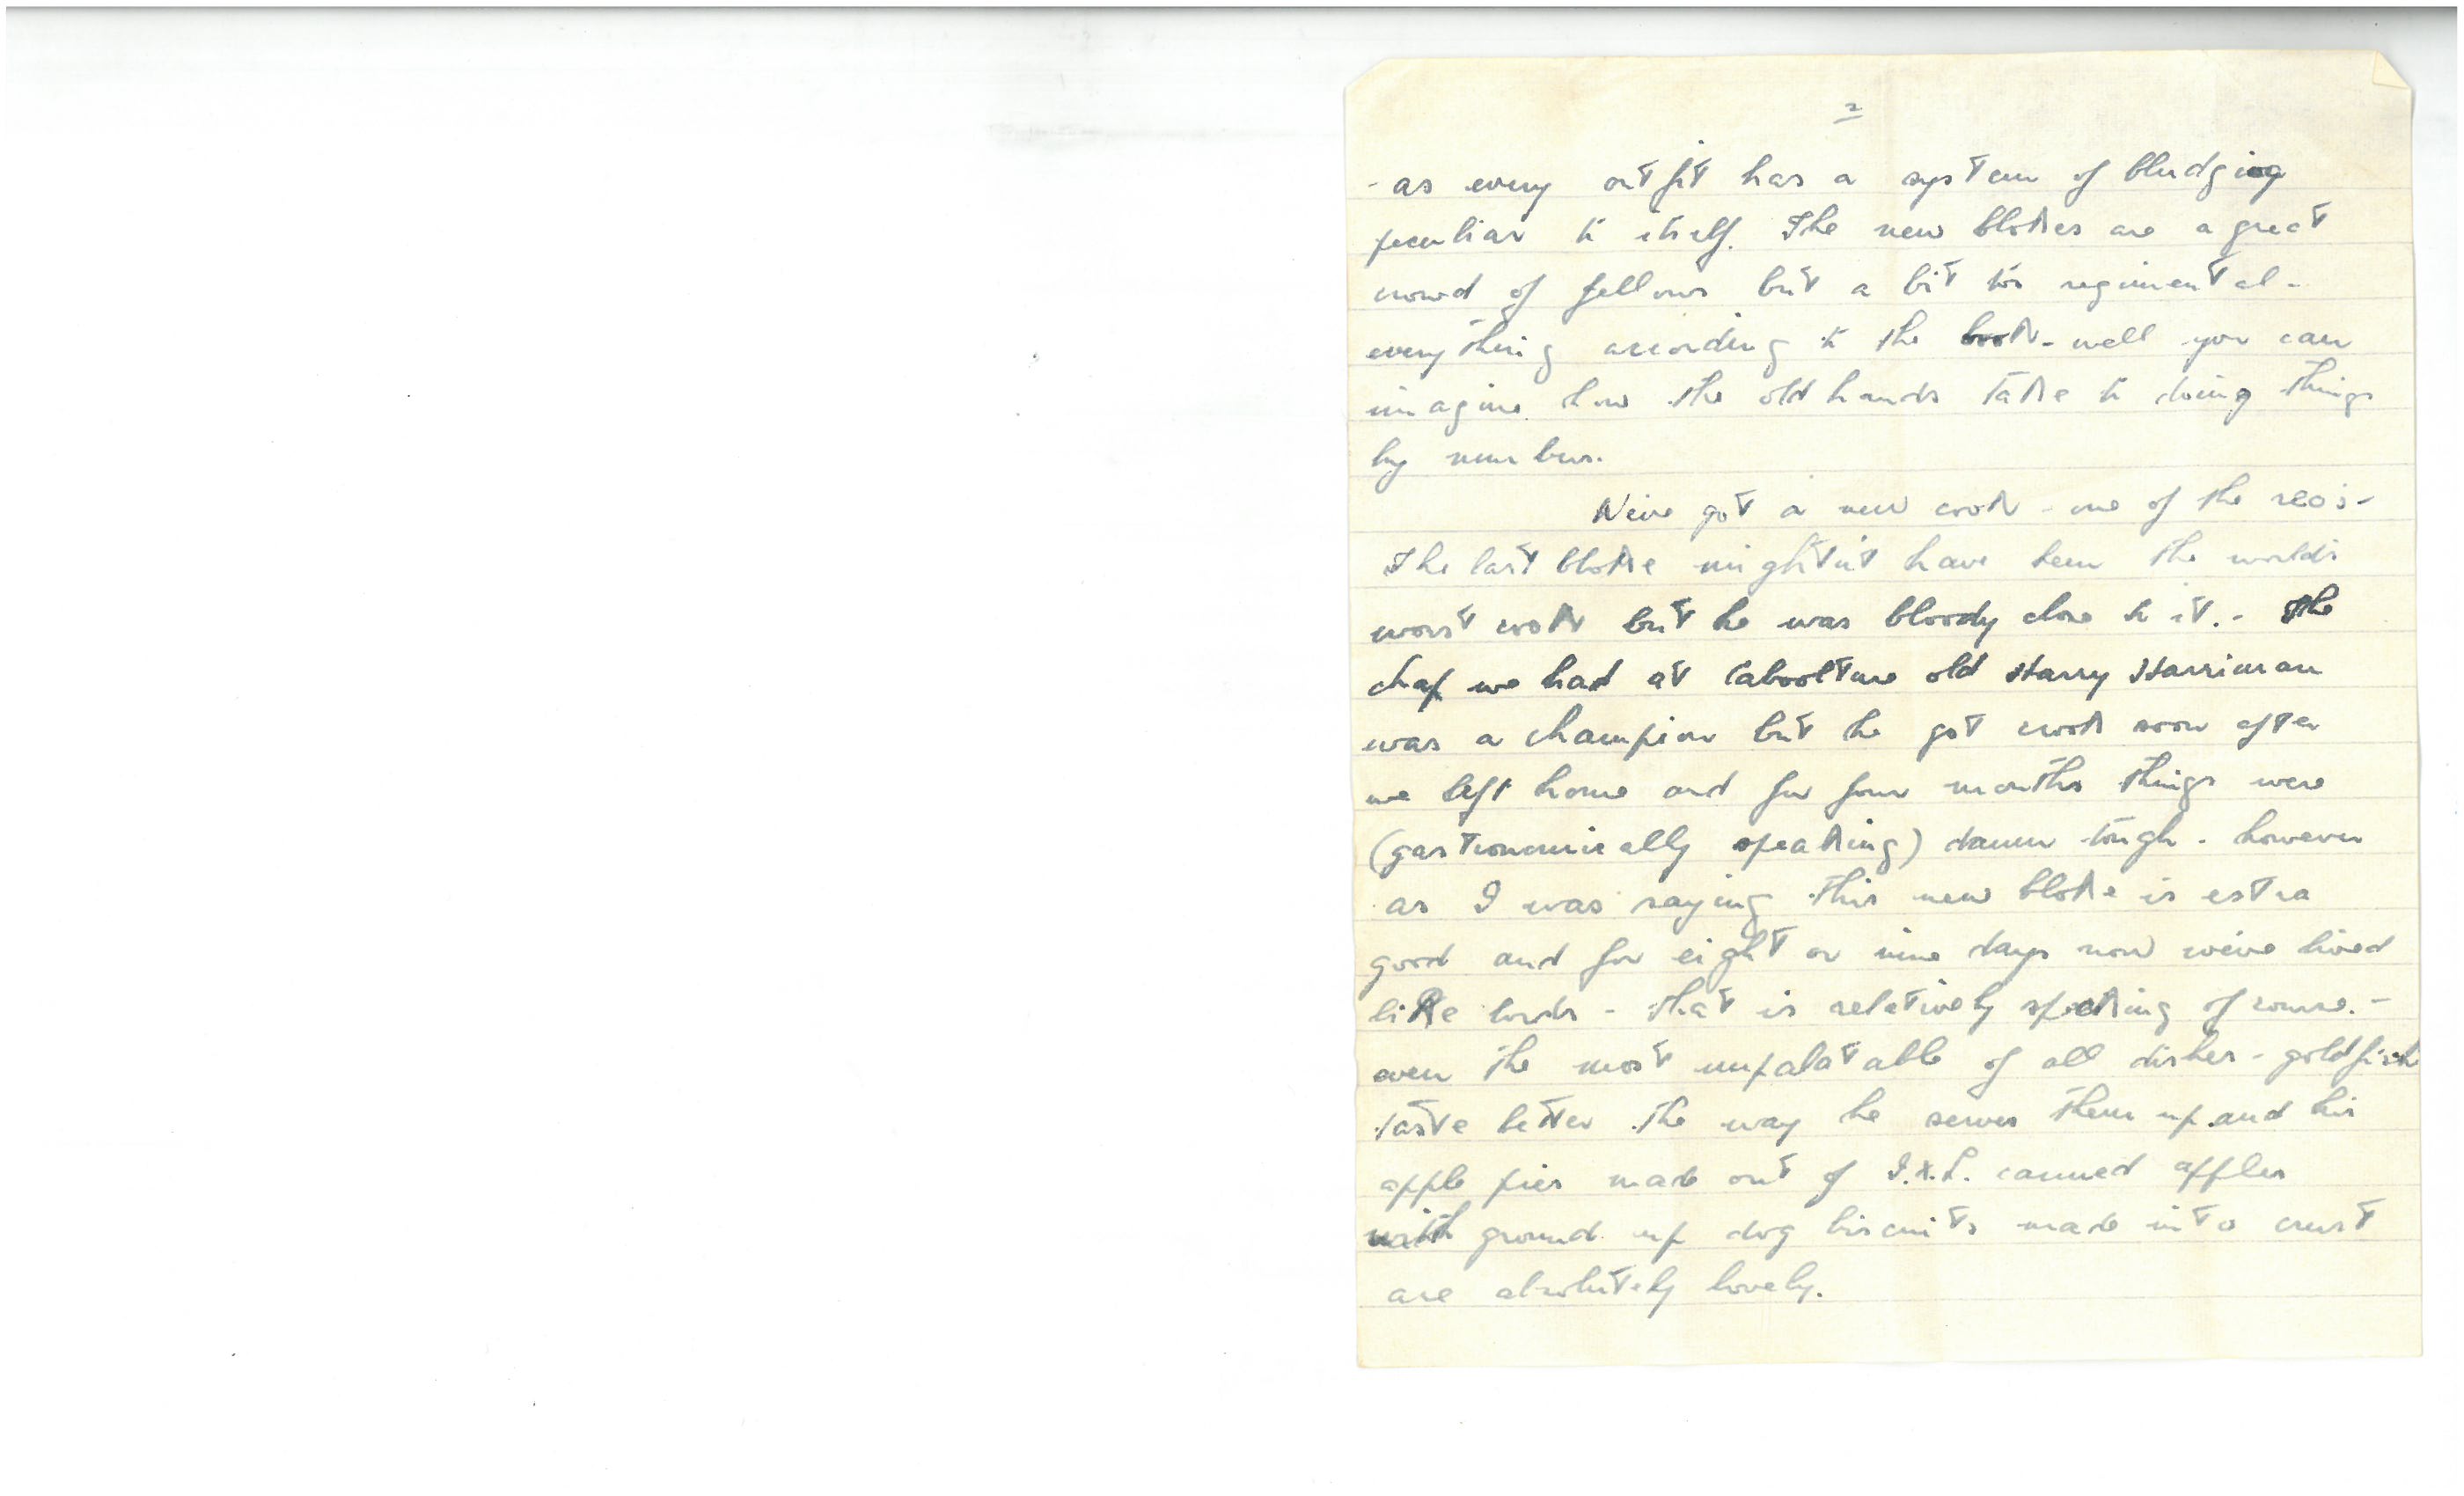 2
- as every outfit has a system of bludging
peculiar to itself. The new blokes are a great
crowd of fellows but a bit too regimental -
everything according to the book - well you can
imagine how the old hands take to doing things
by numbers.
We've got a new cook - one of the reo's -
The last bloke mightn't have been the world's
worst cook but he was bloody close to it. - The
chap we had at Caboolture old Harry Harriman
was a champion but he got crook soon after
we left home and for four months things were
(gastronomically speaking) damn tough - however
as I was saying this new bloke is extra
good and for eight or nine days now we've lived
like lords - that is relatively speaking of course. -
even the most unpalatable of all dishes - goldfish
taste better the way he serves them up and his
apple pies made out of I.X.L. canned apples
with ground up dog biscuits made into crust
are absolutely lovely.